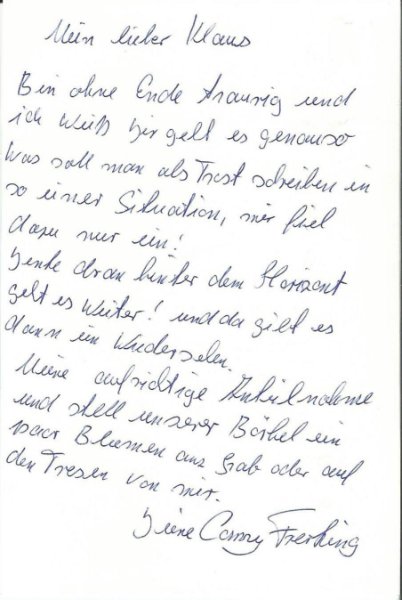 Mein lieber Klaus
Bin ohne Ende traurig und
ich weiß Dir geht es genauso
Was soll man als Trost schreiben in
so einer Situation, mir fiel
dazu nur ein!
Denke dran hinter dem Horizont
geht es weiter! und da gibt es
dann ein Wiedersehen.
Meine aufrichtige Anteilnahme
und stell unserer Bärbel ein
paar Blumen ans Grab oder auf
den Tresen von mir.
Deine Conny Frerking